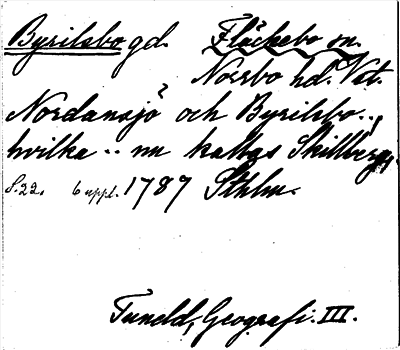 Byrilsbo gd. Fläckebo sn.
Norrbo hd. Vst.
Nordansjö och Byrilsbo..,
hvilka .. nu kallas Skillberg,
S. 22. 6 uppl. 1787 Sthlm.
Tuneld, Geografi. III.